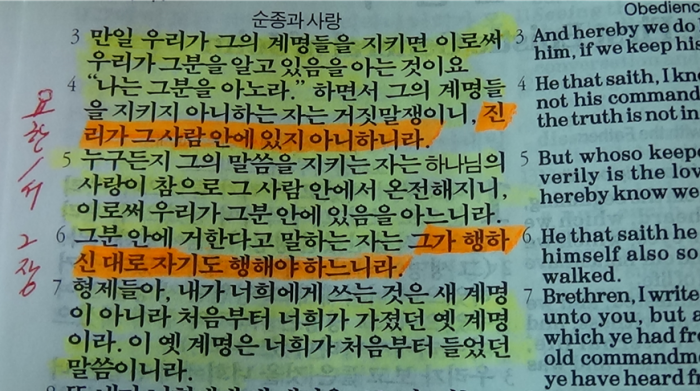 순종과 사랑
3 만일 우리가 그의 계명들을 지키면 이로써
우리가 그분을 알고 있음을 아는 것이요
4 “나는 그분을 아노라.” 하면서 그의 계명들
을 지키지 아니하는 자는 거짓말쟁이니, 진
리가 그 사람 안에 있지 아니하니라.
5 누구든지 그의 말씀을 지키는 자는 하나님의
사랑이 참으로 그 사람 안에서 온전해지니,
이로써 우리가 그분 안에 있음을 아느니라.
6 그분 안에 거한다고 말하는 자는 그가 행하
신 대로 자기도 행해야 하느니라.
7 형제들아, 내가 너희에게 쓰는 것은 새 계명
이 아니라 처음부터 너희가 가졌던 옛 계명
이라. 이 옛 계명은 너희가 처음부터 들었던
말씀이니라.
요한 1서 2장
Obedienc
3 And hereby we do
him, if we keep his
4 He that saith, I kn
not his command
the truth is not in
5 But whoso keep
verily is the lov
hereby know we
6 He that saith he
himself also so
walked.
7 Brethren, I write
unto you, but a
which ye had fr
old commandm
ye have heard f